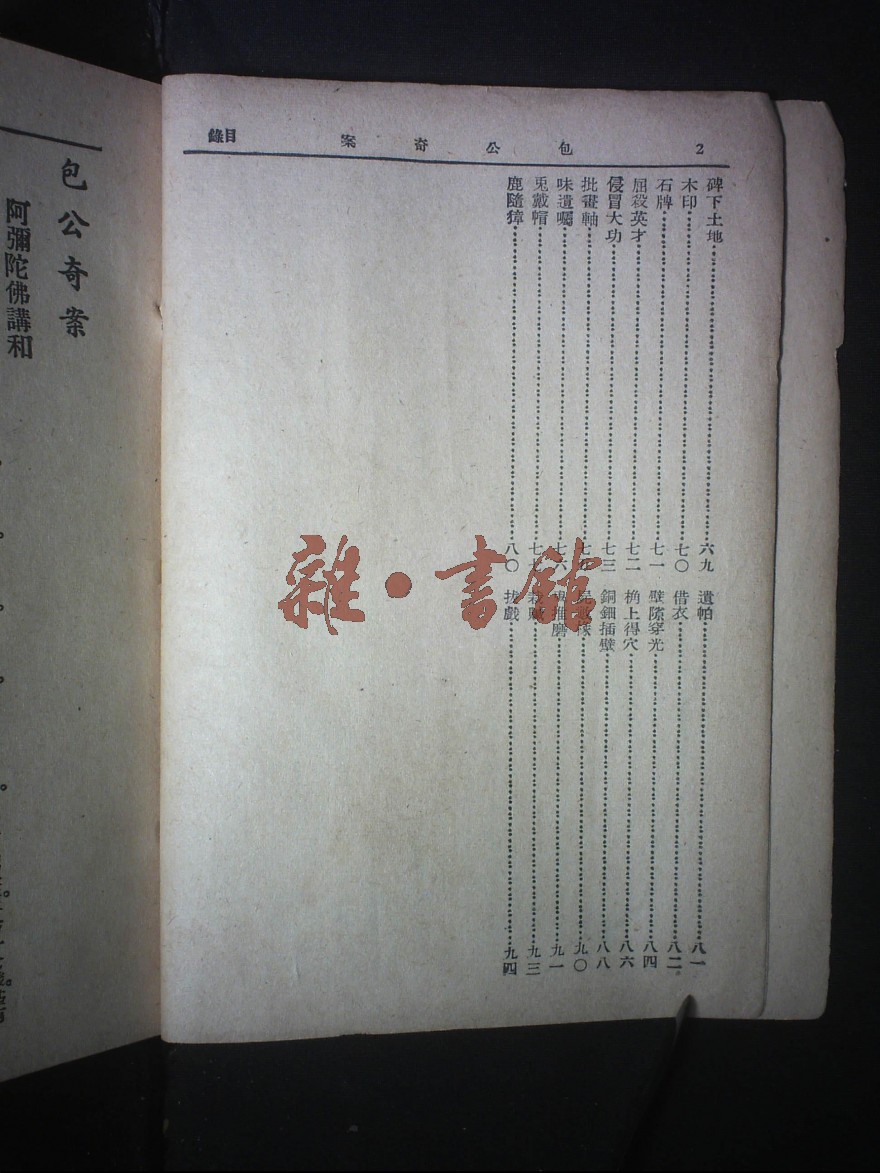 2 包公奇案 目錄
碑下土地 六九
木印 七〇
石牌 七一
屈殺英才 七二
侵冒大功 七三
批畫軸
味遺囑 七六
兎戴帽 七七
鹿隨獐 八〇
遺帕 八一
借衣 八二
壁隙穿光 八四
桷上得穴 八六
銅鈿插壁 八八
九〇
推磨 九一
栽贓 九三
扮戲 九四
包公奇案
阿彌陀佛講和
雜·書館